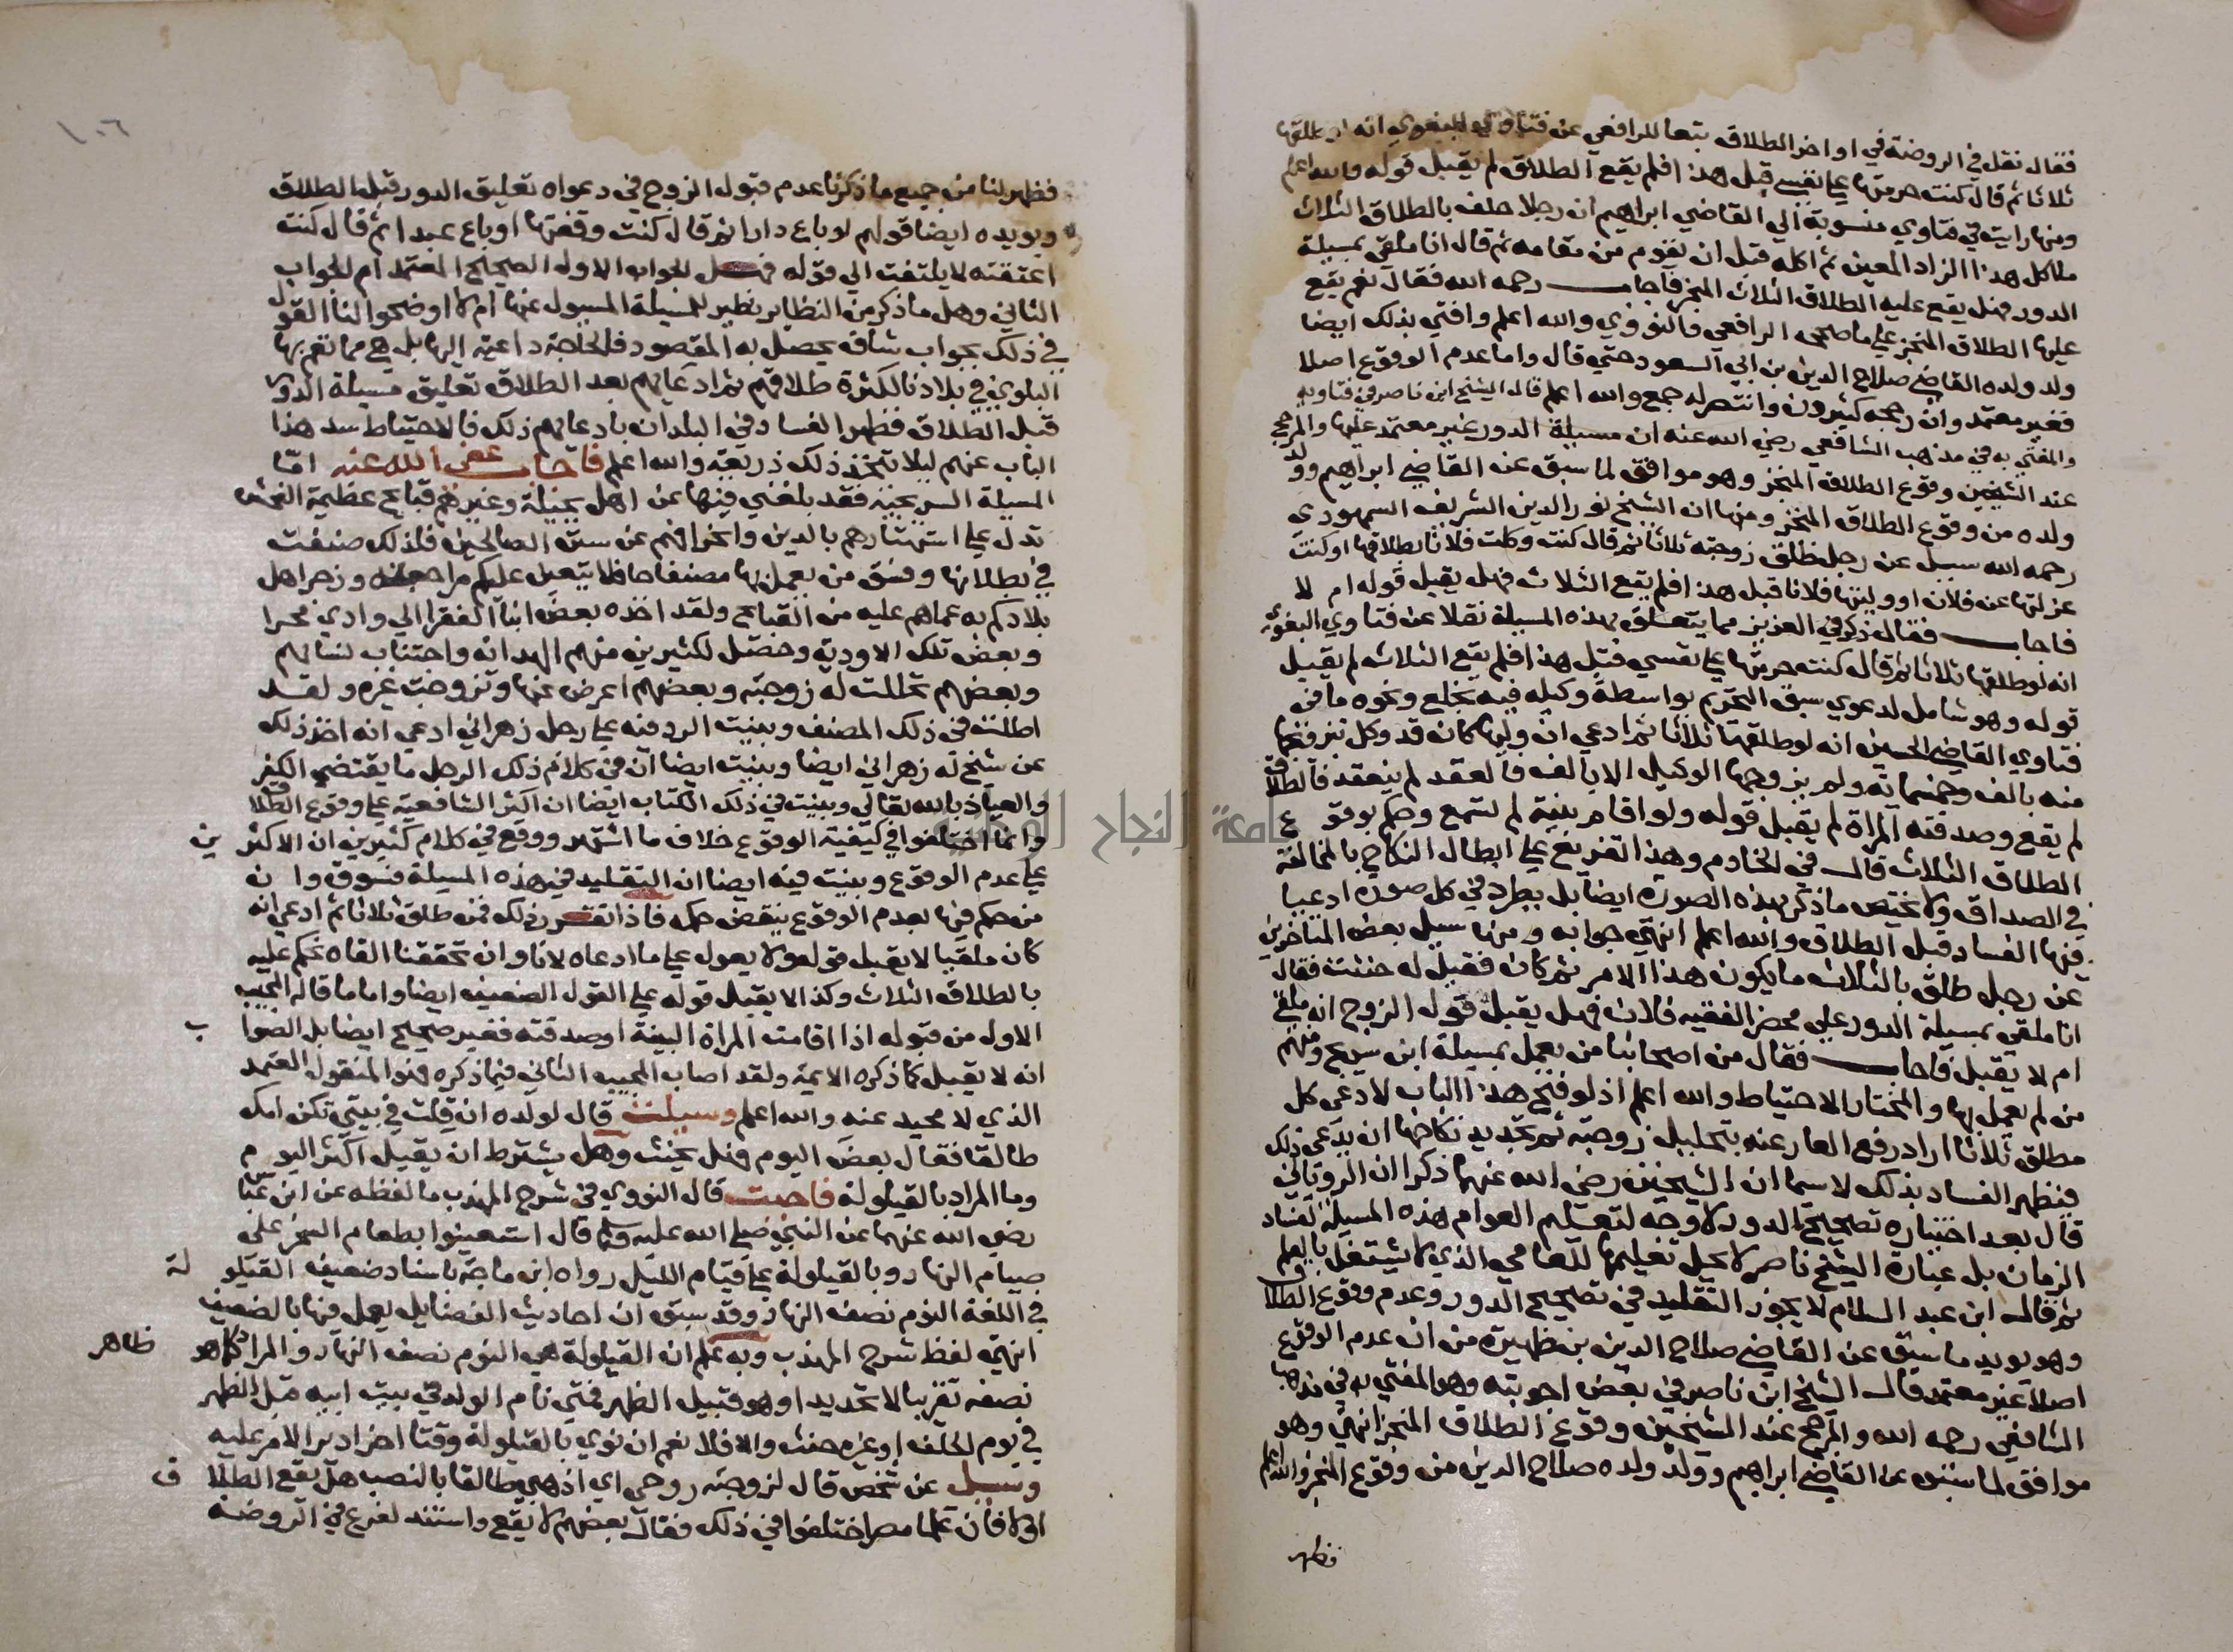 فقال نقل في الروضة في اواخر الطلاق تبعا للرافعي عن فتاوي البغوي انه لو طلقها
ثلاثا ثم قال كنت حرمتها علي نفسي قبل هذا فلم يقع الطلاق لم يقبل قوله والله اعلم
ومنها رايت في فتاوي منسوبة الي القاضي ابراهيم ان رجلا حلف بالطلاق الثلاث
ماكل هذا الزاد المعين ثم اكله قبل ان يقوم من مقامه ثم قال انا ملقي بمسيلة
الدور فهل يقع عليه الطلاق الثلاث المنجز فاجاب رحمه الله فقال نعم يقع
عليها الطلاق المنجز علي ما صححه الرافعي والنووي والله اعلم وافتي بذلك ايضا
ولد ولده القاضي صلاح الدين بن ابي السعود حتي قال واما عدم الوقوع اصلا
فغير معتمد وان رجحه كثيرون وانتصر له جمع والله اعلم قال الشيخ ابن ناصر في فتاويه
والمفتي به في مذهب الشافعي رضي الله عنه ان مسيلة الدور غير معتمد عليها والمرجح
عند الشيخين وقوع الطلاق المنجز وهو موافق لما سبق عند القاضي ابراهيم وولد
ولده من وقوع الطلاق المنجز ومنها ان الشيخ نور الدين الشريف السمهودي
رحمه الله سييل عن رجل طلق زوجته ثلاثا ثم قال كنت وكلت فلانا بطلاقها او كنت
عزلتها عن فلان او وليتها فلانا قبل هذا فلم يقع الثلاث فهل يقبل قوله ام لا
فاجاب فقال ذكر في العزيز مما يتعلق بهذه المسيلة نقلا عن فتاوي البغوي
انه لو طلقها ثلاثا ثم قال كنت حرمتها علي نفسي قبل هذا فلم يقع الثلاث لم يقبل
قوله وهو شامل لدعوي سبق التحريم بواسطة وكيله فيه بخلع ونحوه ما في
فتاوي القاضي الحسين انه لو طلقها ثلاثا ثم ادعي ان وليها كان قد وكل بتزويجها
منه بالف وخمسماية ولم يزوجها الوكيل الا بالف فالعقد لم ينعقد فالطلاق
لم يقع وصدقته المراة لم يقبل قوله ولو اقام بينة لم تسمع وحكم بوقوع
الطلاق الثلاث قال في الخادم وهذا تفريع علي ابطال النكاح بالمخالفة
في الصداق ولا يختص ما ذكر بهذه الصورة ايضا بل يطرد في كل صورة ادعيا
فيها الفساد قبل الطلاق والله اعلم انتهي جوابه ومنها سييل بعض المتاخرين
عن رجل طلق بالثلاث ما يكون هذا الامر ثم كان فقيل له حنثت فقال
انا ملقي بمسيلة الدور علي محضر الفقيه فلان فهل يقبل قول الزوج انه ملقي
ام لا يقبل فاجاب فقال من اصحابنا من يعمل بمسيلة ابن سريج ومنهم
من لم يعمل بها والمختار الاحتياط والله اعلم اذ لو فتح هذا الباب لادعي كل
مطلق ثلاثا اراد رفع العار عنه بتحليل زوجته ثم تجديد نكاحها ان يدعي ذلك
فيظهر الفساد بذلك لا سيما ان الشيخين رضي الله عنهما ذكرا ان الروياني
قال بعد اختياره تصحيح الدور لا وجه لتعليم العوام هذه المسيلة لفساد
الزمان بل عبارة الشيخ ناصر لا يحل تعليمها للعامي الذي لا يشتغل بالعلم
ثم قال ابن عبد السلام لا يجوز التقليد في تصحيح الدور وعدم وقوع الطلاق
وهو يويد ما سبق عن القاضي صلاح الدين بن ظهيرة من ان عدم الوقوع
اصلا غير معتمد قال الشيخ ابن ناصر في بعض اجوبته وهو المفتي به في مذهب
الشافعي رحمه الله والمرجح عند الشيخين وقوع الطلاق المنجز انتهي وهو
موافق لما سبق عن القاضي ابراهيم وولد ولده صلاح الدين من وقوع المنجز والله اعلم
فظهر
١٠٦
فظهر لنا من جميع ما ذكرنا عدم قبول الزوج في دعواه تعليق الدور قبل الطلاق
ويويده ايضا قولهم لو باع دارا ثم قال كنت وقفتها او باع عبدا ثم قال كنت
اعتقته لا يلتفت الي قوله فهل الجواب الاول الصحيح المعتمد ام الجواب
الثاني وهل ما ذكر من النظاير نظير للمسيلة المسيول عنها ام لا اوضحوا لنا القول
في ذلك بجواب شاف يحصل به المقصود فالحاجة داعية اليها بل هي مما تعم بها
البلوي في بلادنا لكثرة طلاقهم ثم ادعايهم بعد الطلاق تعليق مسيلة الدور
قبل الطلاق فظهر الفساد في البلدان بادعايهم ذلك فالاحتياط سد هذا
الباب عنهم ليلا تتخذ ذلك ذريعة والله اعلم فاجاب عفي الله عنه اما
المسيلة السريجية فقد بلغني فيها عن اهل بجيلة وغيرهم قبايح عظيمة الفحش
تدل علي استهتارهم بالدين وانحرافهم عن سنن الصالحين فلذلك صنفت
في بطلانها وفسق من يعمل بها مصنفا حافلا يتعين عليكم مراجعته وزجر اهل
بلادكم به عماهم عليه من القبايح ولقد اخذه بعض ابنا الفقرا الي وادي محرا
وبعض تلك الاودية وحصل لكثيرين منهم الهداية واجتناب نسايهم
وبعضهم تحللت له زوجته وبعضهم اعرض عنها وتزوجت غيره ولقد
اطلت في ذلك المصنف وبينت الرد فيه علي رجل زهراني ادعي انه اخذ ذلك
عن شيخ له زهراني ايضا وبينت ايضا ان في كلام ذلك الرجل ما يقتضي الكفر
والعياذ بالله تعالي وبينت في ذلك الكتاب ايضا ان اكثر الشافعية علي وقوع الطلاق
وانما اختلفوا في كيفية الوقوع خلاف ما اشتهر ووقع في كلام كثيرين ان الاكثرين
علي عدم الوقوع وبينت فيه ايضا ان التقليد في هذه المسيلة فسوق وان
من حكم فيها بعدم الوقوع ينقض حكمه فاذا تقرر ذلك فمن طلق ثلاثا ثم ادعي انه
كان ملقيا لا يقبل قوله ولا يعول علي ما ادعاه لانا وان تحققنا القاه نحكم عليه
بالطلاق الثلاث وكذا لا يقبل قوله علي القول الضعيف ايضا واما ما قاله المجيب
الاول من قبوله اذا اقامت المراة البينة او صدقته فغير صحيح ايضا بل الصواب
انه لا يقبل كما ذكره الايمة ولقد اصاب المجيب الثاني فيما ذكره فهو المنقول المعتمد
الذي لا محيد عنه والله اعلم وسيلت قال لولده ان قلت في بيتي تكن امك
طالقا فقال بعض اليوم فهل يحنث وهل يشترط ان يقيل اكثر اليوم
وما المراد بالقيلولة فاجبت قال النووي في شرح المهذب ما لفظه عن ابن عبا
رضي الله عنهما عن النبي صلي الله عليه وسلم قال استعينوا بطعام السحر علي
صيام النهار وبالقيلولة علي قيام الليل رواه ابن ماجة باسناد ضعيف القيلولة
في اللغة النوم نصف النهار وقد سبق ان احاديث الفضايل يعمل فيها بالضعيف
انتهي لفظ شرح المهذب وبه علم ان القيلولة هي النوم نصف النهار والمراد كما هو ظاهر
نصفه تقريبا لا تحديدا وهو قبيل الظهر فمتي نام الولد في بيت ابيه قبل الظهر
في يوم الحلف او غيره حنث والا فلا نعم ان نوي بالقيلولة وقتا اخر ادير الامر عليه
وسييل عن شخص قال لزوجته روحي اي اذهبي طالقا بالنصب هل يقع الطلاق
ام لا فان علما مصر اختلفوا في ذلك فقال بعضهم لا يقع واستند لفرع في الروضة
جامعة النجاح الوطنية